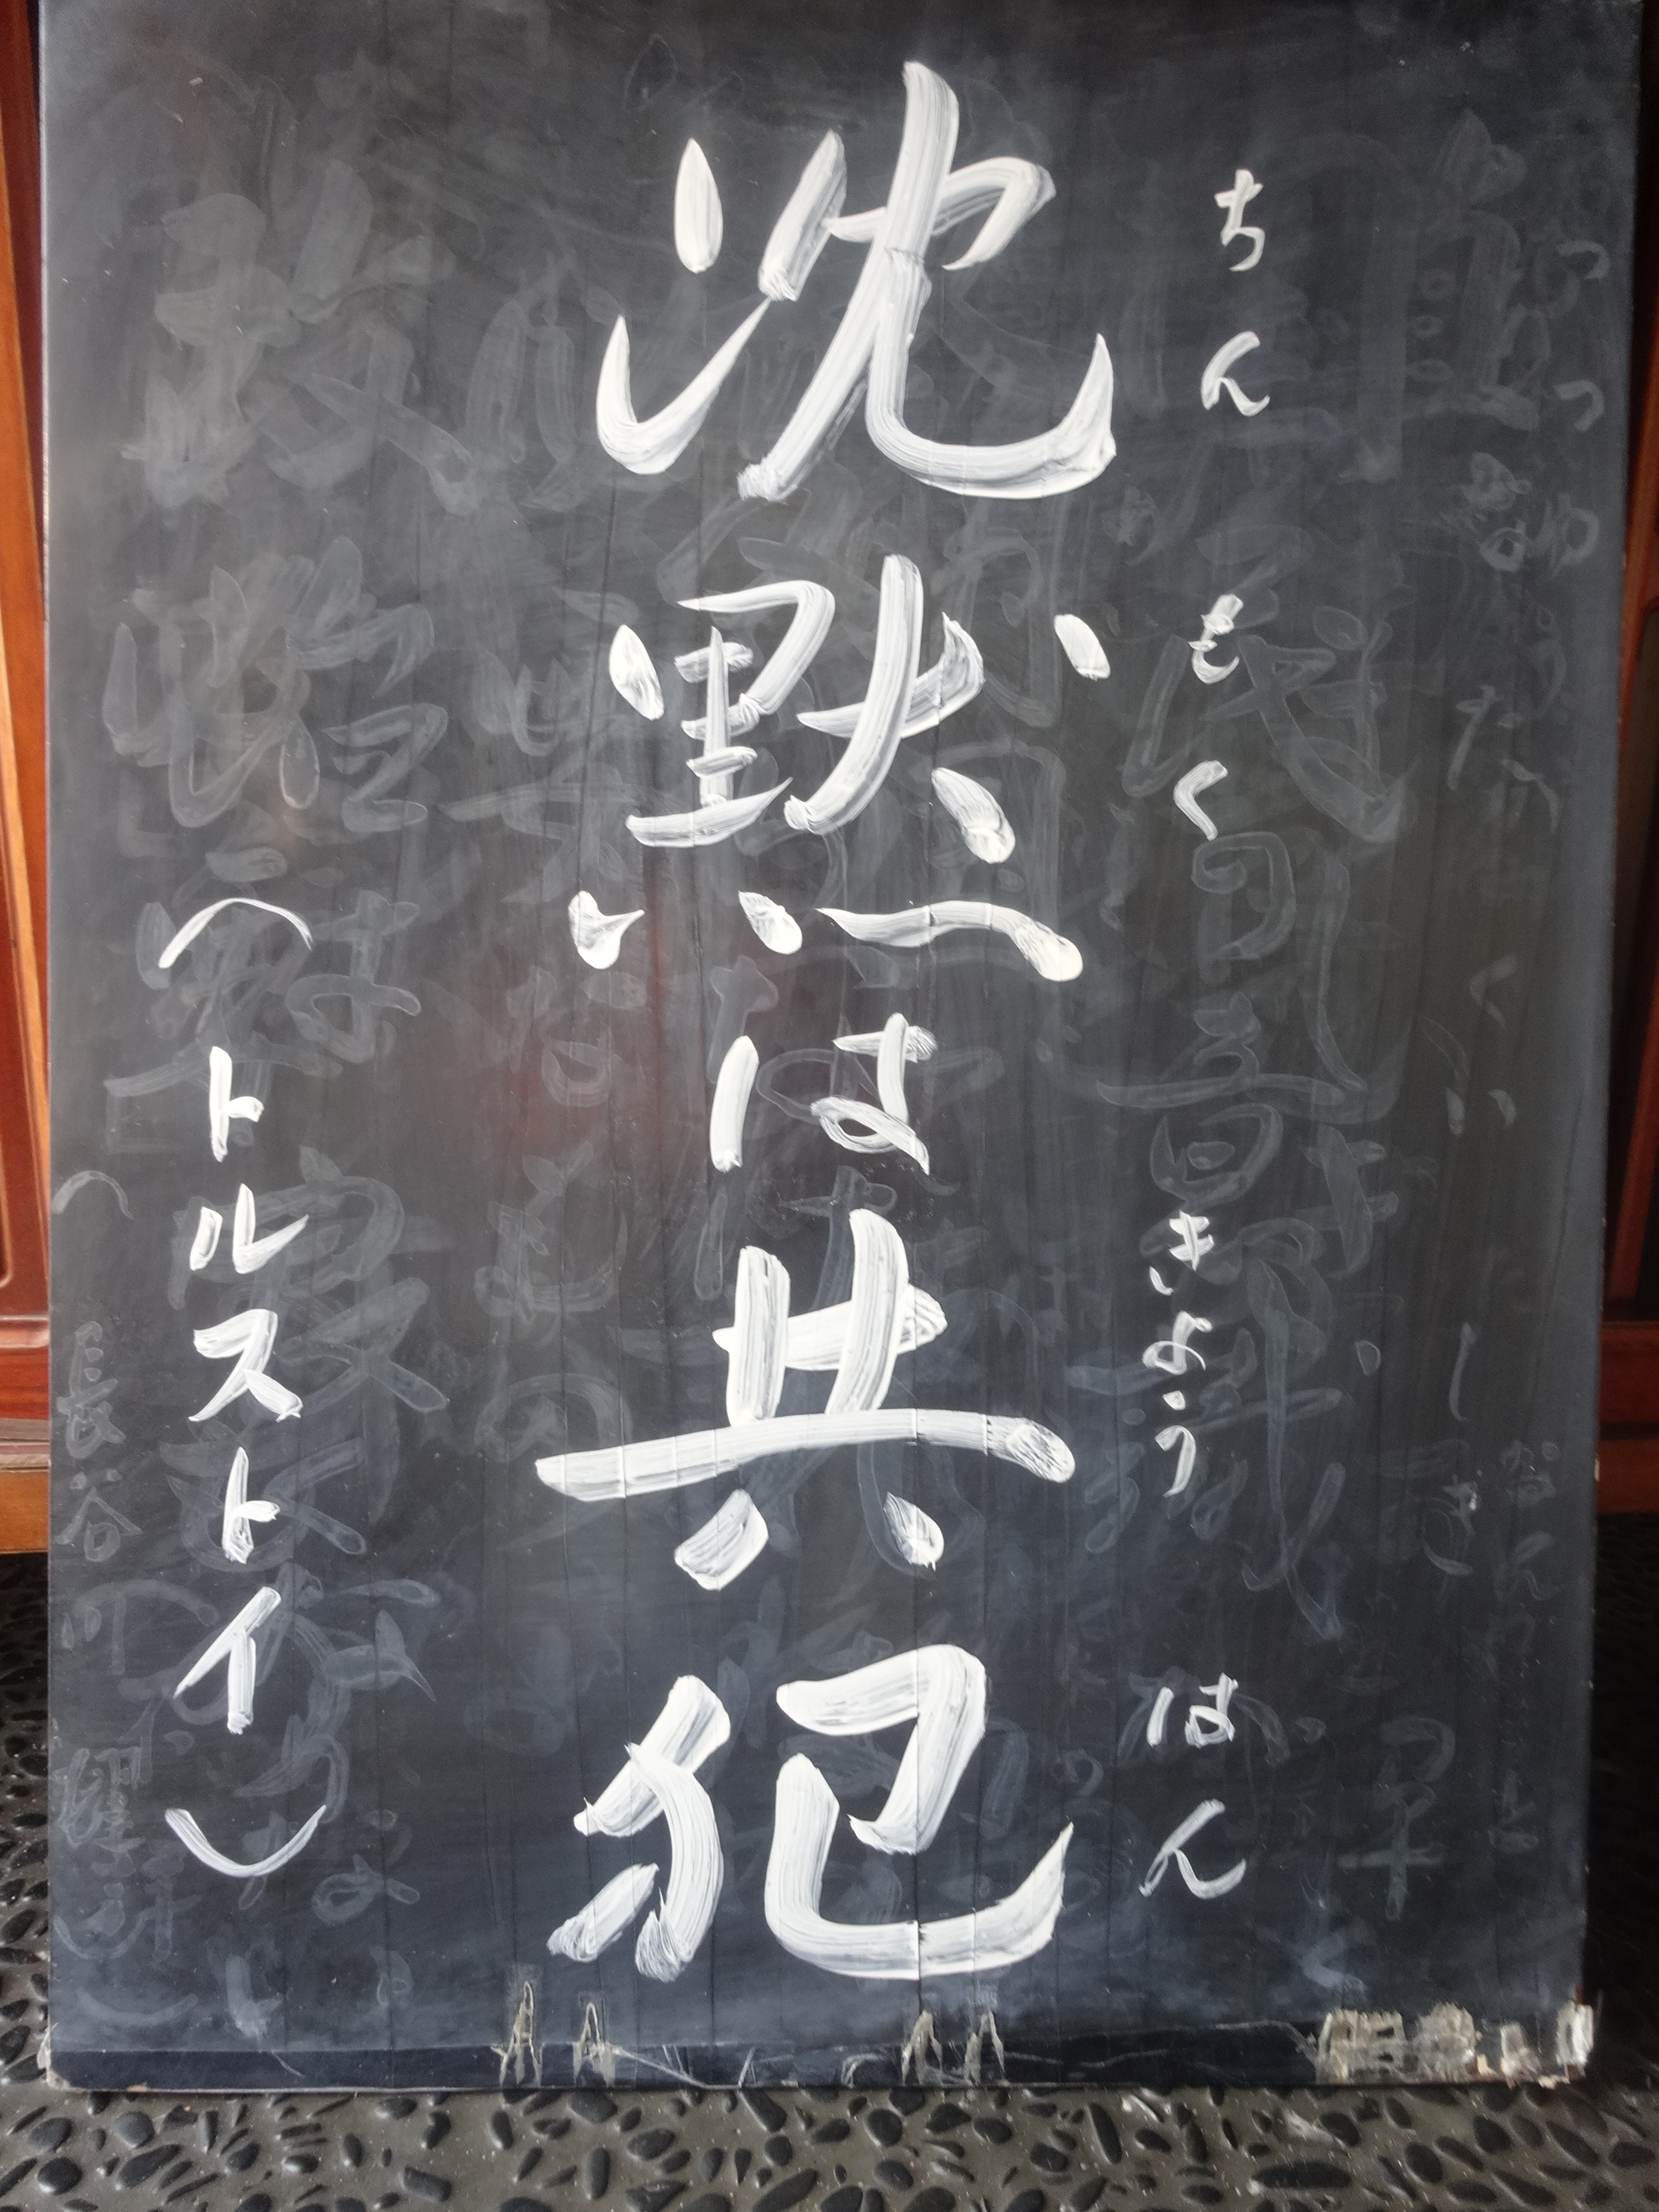 ちんもく きょうはん
沈黙は共犯
(トルストイ)